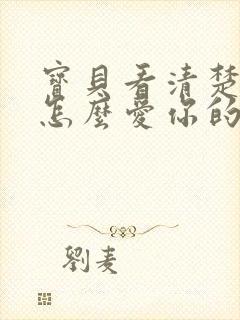 寶貝看清楚
怎麼愛你的
劉麦